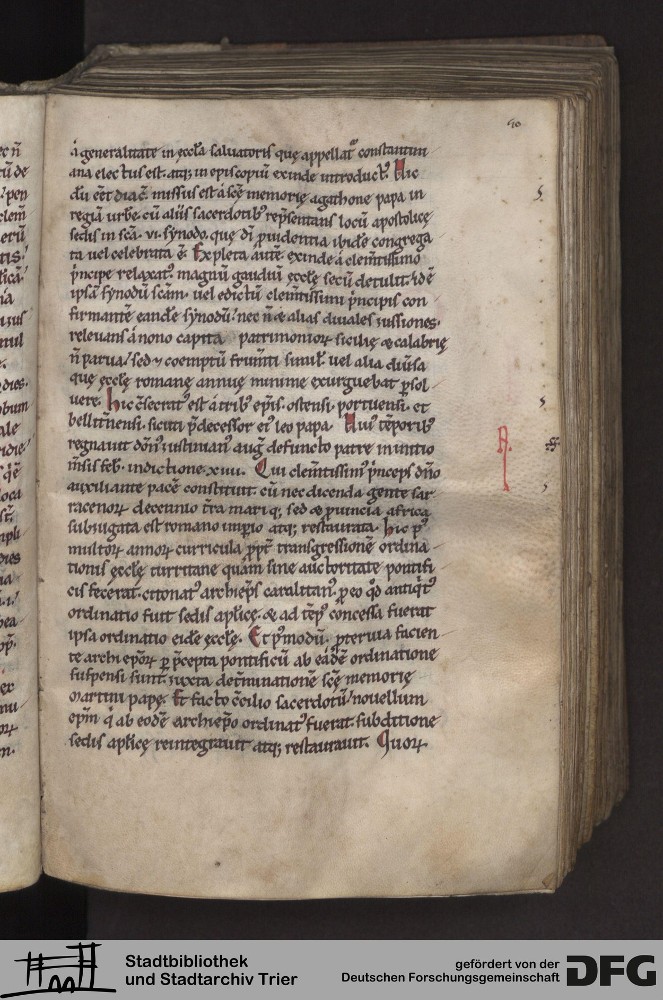 50
á generalitate in ęccła saluatoris quę appellat᷑ constantini
ana electus est. atq; in episcopiũ exinde introduct᷒. Hic
dũ eẽt diac̃. missus est a scẽ memorię agathone papa in
regiã urbẽ. cũ aliis sacerdotib᷒ rep̃sentans locũ apostolicę
sedis in scã. vi. synodo. que dĩ p̃uidentia ibidẽ congrega
ta uel celebrata ẽ. Expleta autẽ. exinde a clem̃tissimo
p̃ncipe relaxat᷒. magnũ gaudiũ ęcclę secũ detulit. idẽ
ipsã synodũ scãm. uel edictũ clem̃tissimi p̃ncipis con
firmantẽ eandẽ synodũ. nec ñ & alias diuales iussiones.
releuans á nono capita patrimonioꝝ sicilię & calabrię
ñ parua. sed & coemptũ frum̃ti simił. uel alia diũsa
que ęcclę romanę annuę minime exurguebat ꝑsol
uere. Hic c̃secrat᷒ est a trib᷒ ep̃is. ostensi. portuensi. et
bellitñensi. sicuti p̃decessor ei᷒ leo papa. Hui᷒ tẽporib᷒
regnauit doñ᷒ iustinian᷒ aug̃ defuncto patre in initio
m̃sis feb̃. indictione. xiiii. Qui clem̃tissim᷒ p̃nceps dño
auxiliante pacẽ constituit. cũ nec dicenda gente sar
racenoꝝ decennio t̃ra mariq; sed & ꝓuincia africa
subiugata est romano imꝑio atq; restaurata. Hic p᷒
multoꝝ annoꝝ curricula ꝓpt̃ transgressionẽ ordina
tionis ęcclę turritane quam sine auctoritate pontifi
cis fecerat. citonat᷒ archiep̃s caralitan᷒. ꝓ eo qđ antiq̃t᷒
ordinatio fuit sedis aplicę. & ad tẽp᷒ c̃oncessa fuerat
ipsa ordinatio eidẽ ęcclę. Et p᷒modũ. ꝓteruia facien
te archiep̃oꝝ ꝑ p̃cepta pontificũ ab eãdẽ ordinatione
suspensi sunt. iuxta det̃minationẽ scẽ memorię
martini papę. Et facto c̃cilio sacerdotũ. nouellum
ep̃m q̇ ab eodẽ archiep̃o ordinat᷒ fuerat. sub ditione
sedis aplicę reintegrauit atq; restaurauit. Quoꝝ
Stadtbibliothek
und Stadtarchiv Trier
gefördert von der
Deutschen Forschungsgemeinschaft
DFG